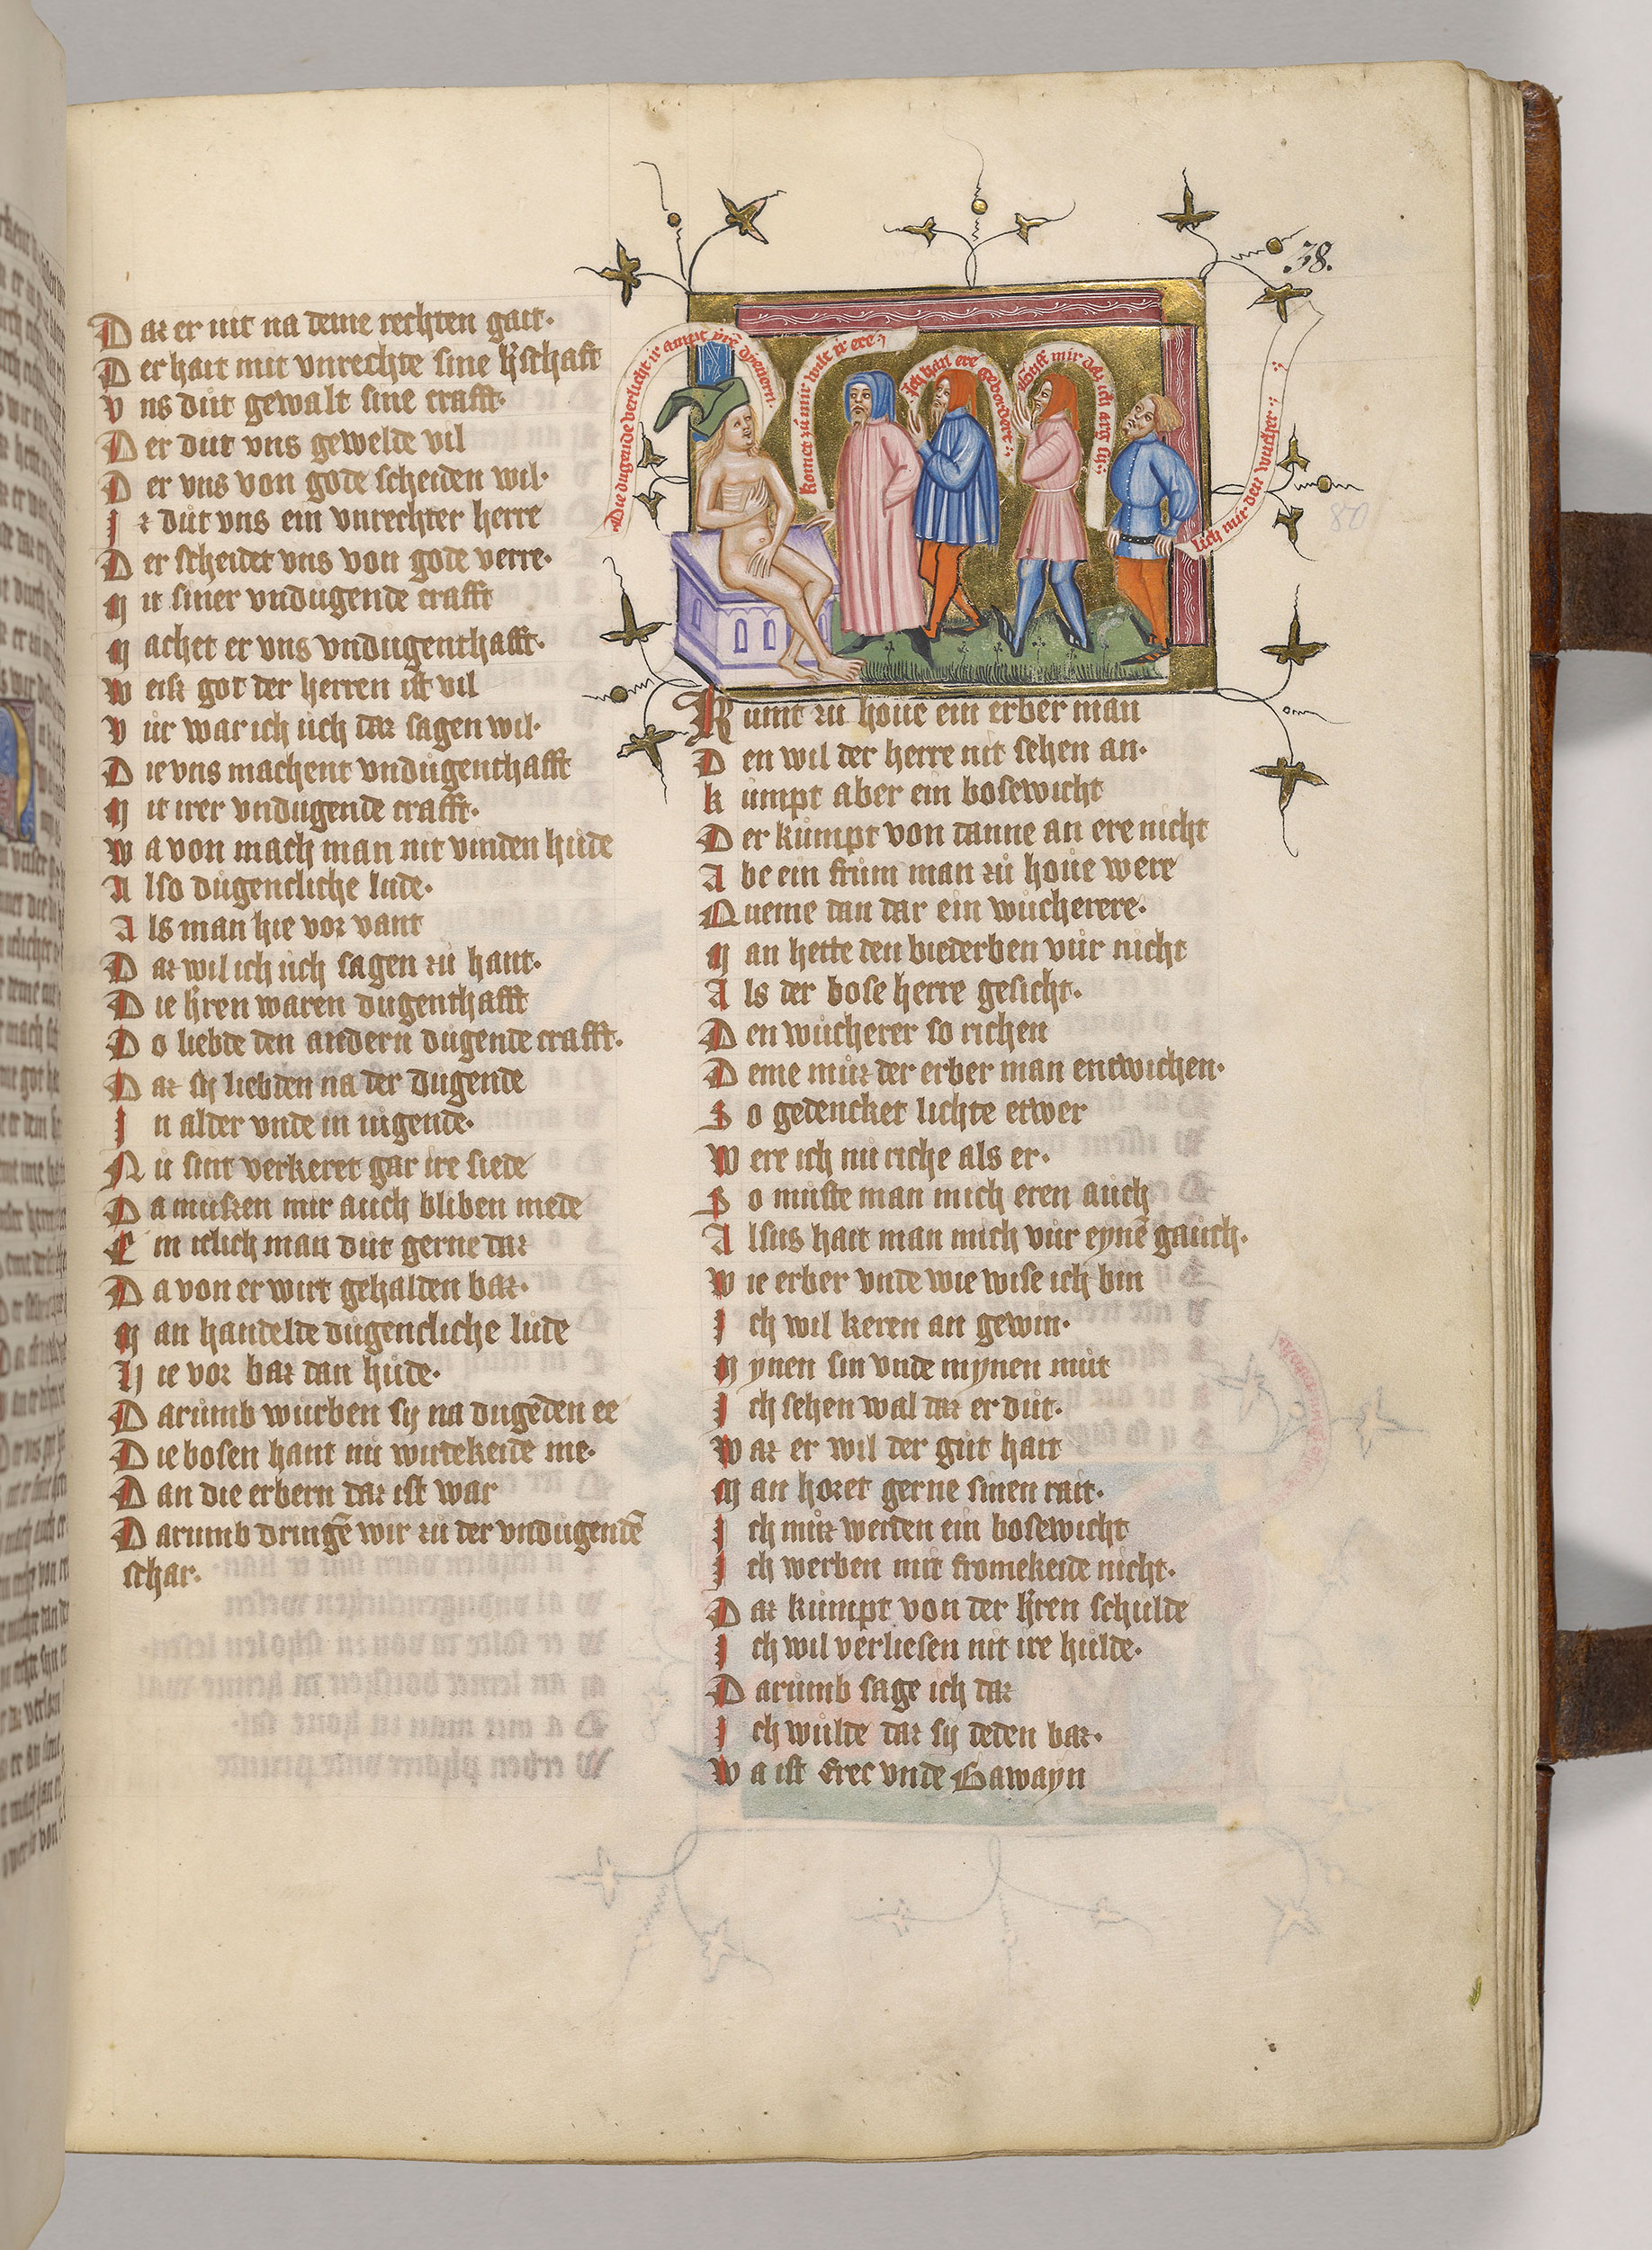 38.
Daz er nit na deme rechten gait·
Der hait mit vnrechte sine h̓schafft
Vns dut gewalt sine crafft·
Der dut vns gewelde vil
Der vns von gode scheiden wil·
Iz dut vns ein vnrechter herre
Der scheidet vns von gode verre·
Mit siner vndugende crafft
Machet er vns vndugenthafft·
Weiz got der herren ist vil
Vur war ich uch daz sagen wil·
Die vns machent vndugenthafft
Mit irer vndugende crafft·
Wa von mach man nit vinden hude
Also dugentliche lude·
Als man hie vor vant
Daz wil ich uch sagen zu hant·
Die h̓ren waren dugenthafft
Do liebde den andern dugende crafft·
Daz sy liebden na der dugende
In alder vnde in iugende·
Nu sint verkeret gar ire siede
Da muszen mir auch bliben mede
Ein iclich man dut gerne daz
Da von er wirt gehalden baz·
Man handelde dugentliche lude
Hie vor baz dan hude·
Darumb wurben sy na dugēden ee
Die bosen hant nu wirdekeide me·
Dan die erbern daz ist war
Darumb dringē wir zu der vndugendē
schar·
Die dugende verlicht ir ampt yrē dyenern·
komet zu mir wilt ir ere
Ich han ere gevordert
Hilff mir daz ich arg sy
lich mir den wucher
Kumt zu houe ein erber man
Den wil der herre nit sehen an·
kumpt aber ein bosewicht
Der kumpt von danne an ere nicht
Abe ein frum man zu houe were
Queme dan dar ein wucherere·
Man hette den biederben vur nicht
Als der bose herre gesicht·
Den wucherer so richen
Deme muz der erber man entwichen·
So gedencket lichte etwer
Were ich nu riche als er·
So muste man mich eren auch
Alsus hait man mich vur eynē gauch·
Wie erber vnde wie wise ich bin
Ich wil keren an gewin·
Mynen sin vnde mynen mut
Ich sehen wal daz er dut·
Waz er wil der gut hait
Man horet gerne sinen rait·
Ich muz werden ein bosewicht
Ich werben mit fromekeide nicht·
Daz kumpt von der h̓ren schulde
Ich wil verliesen nit ire hulde·
Darumb sage ich daz
Ich wulde daz sy deden baz·
Wa ist Erec vnde Gawayn